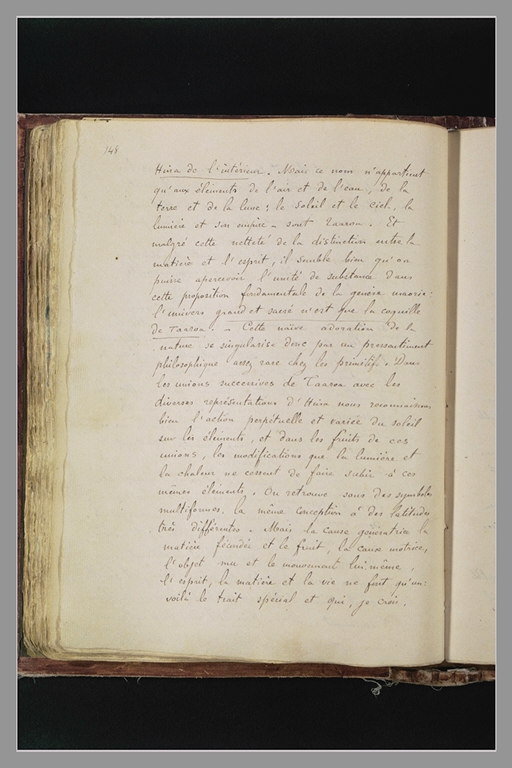 148
Hina de l'intérieur. Mais ce nom n'appartient
qu'aux éléments de l'air et de l'eau, de la
terre et de la lune ; le soleil et le ciel, la
lumière et son empire _ sont Taaroa. Et
malgré cette netteté de la distinction entre la
matière et l'esprit, il semble bien qu'on
puisse apercevoir l'unité de substance dans
cette proposition fondamentale de la genèse maorie :
l'univers grand et sacré n'est que la coquille
de Taaroa. _ Cette naïve adoration de la
nature se singularise donc par un pressentiment
philosophique assez rare chez les primitifs. Dans
les unions successives de Taaroa avec les
diverses représentations d'Hina nous reconnaissons
bien l'action perpétuelle et variée du soleil
sur les éléments, et dans les fruits de ces
unions, les modifications que la lumière et
la chaleur ne cessent de faire subir à ces
mêmes éléments. On retrouve sous des symboles
multiformes, la même conception à des latitudes
très différentes. Mais la cause génératrice la
matière fécondée et le fruit, la cause motrice,
l'objet mu et le mouvement lui même,
l'esprit, la matière et la vie ne font qu'un :
voilà le trait spécial et qui, je crois,